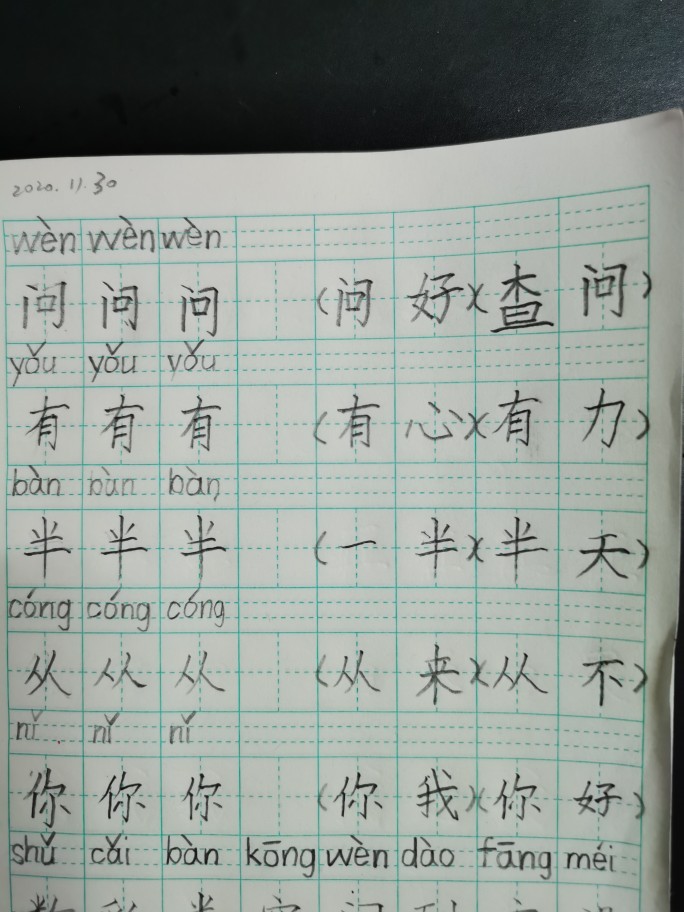 2020.11.30
wèn wèn wèn
问 问 问 (问 好)(查 问)
yǒu yǒu yǒu
有 有 有 (有 心)(有 力)
bàn bàn bàn
半 半 半 (一 半)(半 天)
cóng cóng cóng
从 从 从 (从 来)(从 不)
nǐ nǐ nǐ
你 你 你 (你 我)(你 好)
shǔ cǎi bàn kōng wèn dào fāng méi